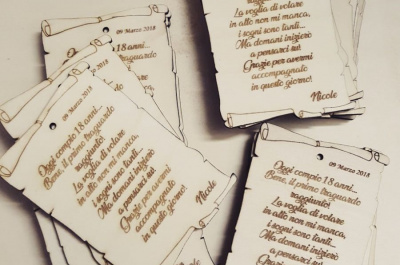 09 Marzo 2018
Oggi compio 18 anni...
Bene, il primo traguardo
raggiunto!
La voglia di volare
in alto non mi manca,
i sogni sono tanti...
Ma domani inizierò
a pensarci su!
Grazie per avermi
accompagnato
in questo giorno!
Nicole
La voglia di volare
in alto non mi manca,
i sogni sono tanti...
Ma domani inizierò
a pensarci su!
Grazie per avermi
accompagnato
in questo giorno!
Nicole
09 Marzo 2018
Oggi compio 18 anni...
Bene, il primo traguardo
raggiunto!
La voglia di volare
in alto non mi manca,
i sogni sono tanti...
Ma domani inizierò
a pensarci su!